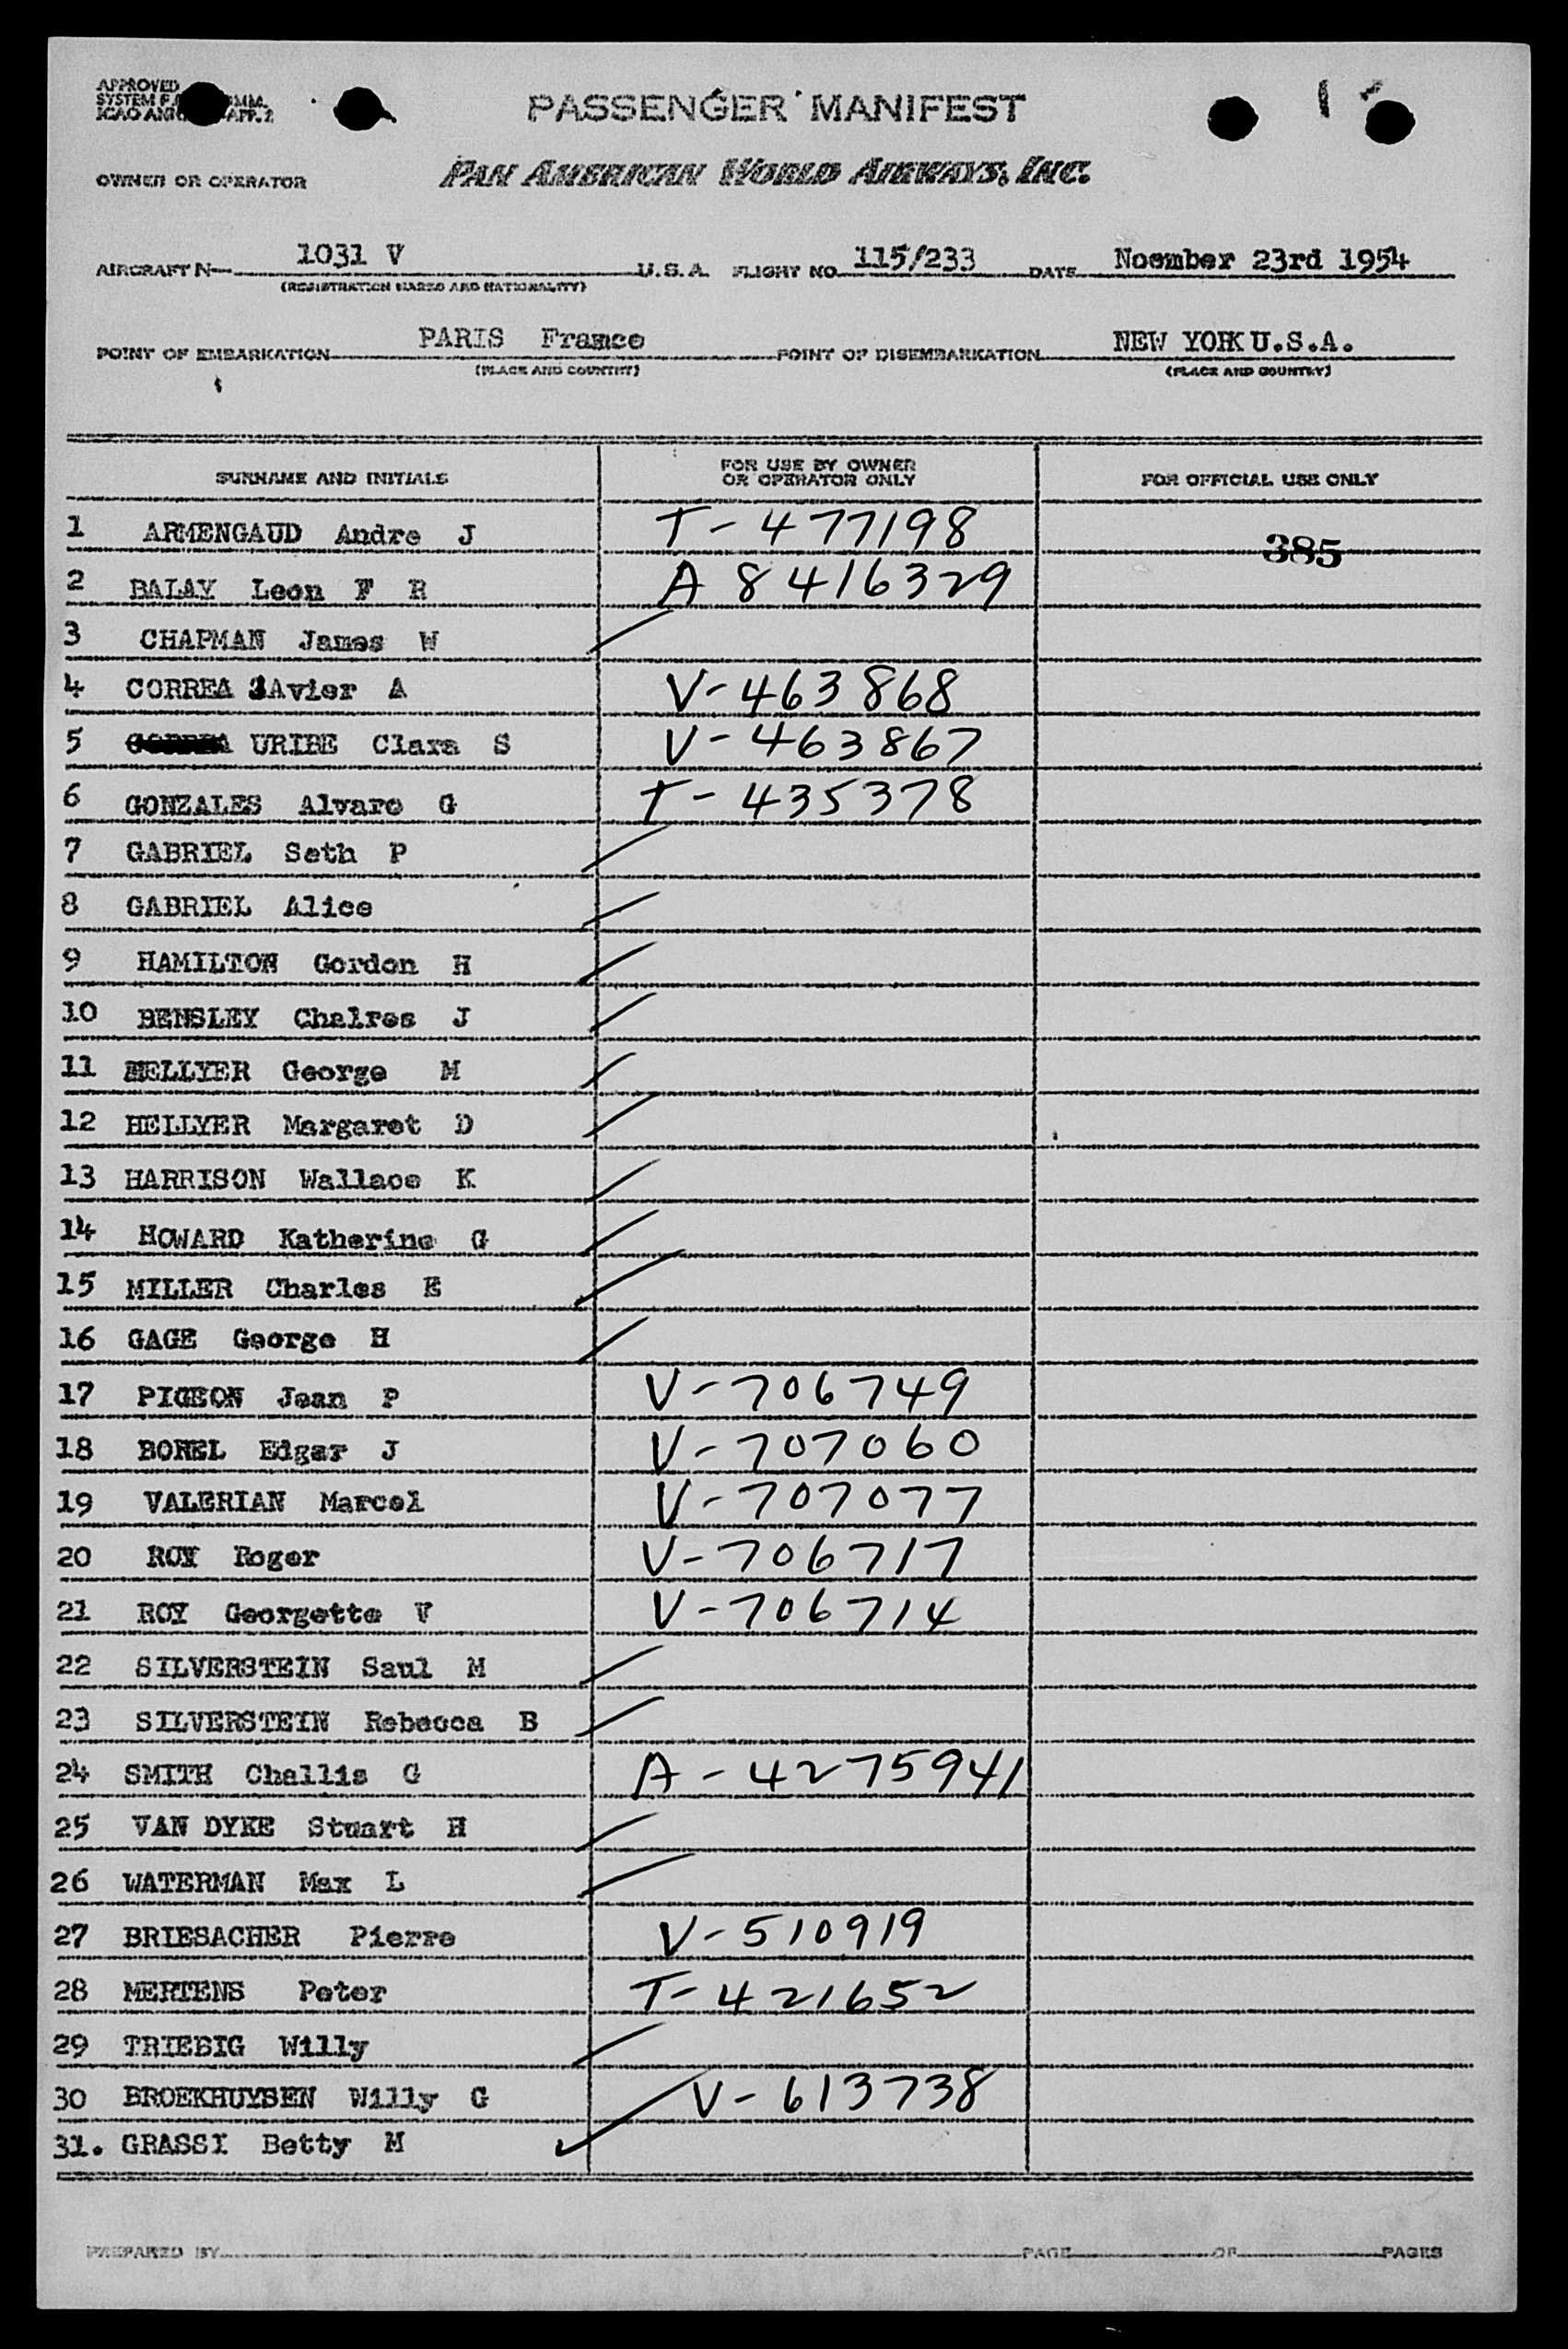 APPROVED
SYSTEM
PASSENGER MANIFEST
OWNER OR OPERATOR PAN AMERICAN WORLD AIRWAYS, INC.
AIRCRAFT N- 1031 V U.S.A. FLIGHT NO. 115/233 DATE Noember 23rd 1954
(REGISTRATION MARKS AND NATIONALITY)
POINT OF EMBARKATION PARIS France POINT OF DISEMBARKATION NEW YORK U.S.A.
(PLACE AND COUNTRY) (PLACE AND COUNTRY)
SURNAME AND INITIALS FOR USE BY OWNER OR OPERATOR ONLY FOR OFFICIAL USE ONLY
1 ARMENGAUD Andre J T-477198
385
2 BALAY Leon F R A 8416329
3 CHAPMAN James W
4 CORREA JAvier A V-463868
5 URIBE Clara S V-463867
6 GONZALES Alvaro G T-435378
7 GABRIEL Seth P
8 GABRIEL Alice
9 HAMILTON Gordon H
10 BENSLEY Chalres J
11 HELLYER George M
12 HELLYER Margaret D
13 HARRISON Wallace K
14 HOWARD Katherine G
15 MILLER Charles E
16 GAGE George H
17 PIGEON Jean P V-706749
18 BOREL Edgar J V-707060
19 VALERIAN Marcel V-707077
20 ROY Roger V-706717
21 ROY Georgette V V-706714
22 SILVERSTEIN Saul M
23 SILVERSTEIN Rebecca B
24 SMITH Challis G A-4275941
25 VAN DYKE Stuart H
26 WATERMAN Max L
27 BRIESACHER Pierre V-510919
28 MERTENS Peter T-421652
29 TRIEBIG Willy
30 BROEKHUYSEN Willy G V-613738
31. GRASSI Betty M
PREPARED BY PAGE OF PAGES